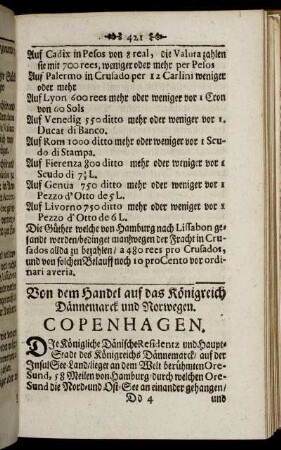 421
Auf Cadix in Pesos von 8 real, die Valuta zahlen
sie mit 700 rees, weniger oder mehr per Pesos
Auf Palermo in Crusado per 12 Carlini weniger
oder mehr
Auf Lyon 600 rees mehr oder weniger vor 1 Cron
von 60 Sols
Auf Venedig 550 ditto mehr oder weniger vor 1.
Ducat di Banco.
Auf Rom 1000 ditto mehr oder weniger vor 1 Scu-
do di Stampa.
Auf Fierenza 800 ditto mehr oder weniger vor 1
Scudo di 7½ L.
Auf Genua 750 ditto mehr oder weniger vor 1
Pezzo d'Otto de 5 L.
Auf Livorno 750 ditto mehr oder weniger vor 1
Pezzo d'Otto de 6 L.
Die Güther welche von Hamburg nach Lissabon ge-
sandt werden/bedinget man wegen der Fracht in Cru-
sados allda zu bezahlen/ a 480 rees pro Crusados,
und von solchen Belauff noch 10 pro Cento vor ordi-
nari averia.
Von dem Handel auf das Königreich
Dännemarck und Norwegen.
COPENHAGEN.
DIe Königliche Dänische Residentz und Haupt-
Stadt des Königreichs Dännemarck/ auf der
Insul See-Land/lieget an dem Welt berühmten Ore-
Sund, 58 Meilen von Hamburg/durch welchen Ore-
Sund die Nord-und Ost-See an einander gehangen/
Dd 4 und